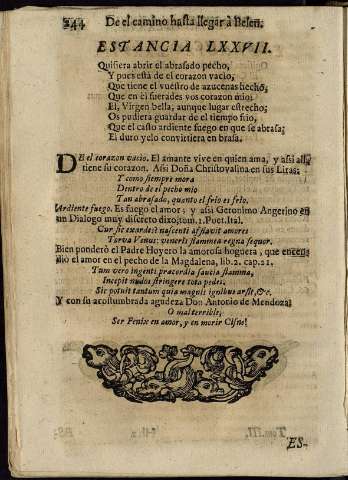 244 De el camino hasta llegar à Belen.
ESTANCIA LXXVII.
Quisiera abrir el abrasado pecho,
Y pues està de el corazon vacio,
Que tiene el vuestro de azucenas hecho,
Que en èl fuerades vos corazon mio:
El, Virgen bella, aunque lugar estrecho;
Os pudiera guardar de el tiempo frio,
Que el casto ardiente fuego en que se abrasa;
El duro yelo convirtiera en brasa.
DE el corazon vacio. El amante vive en quien ama, y assi allà
tiene su corazon. Assi Doña Christovalina en sus Liras:
Y como siempre mora
Dentro de el pecho mio
Tan abrasado, quanto el frio es frio.
Ardiente fuego. Es fuego el amor; y assi Geronimo Angerino en
un Dialogo muy discreto dixo; tom. 1. Poet. Ital.
Cur sic exardes? nascenti afflavit amores
Torva Venus: veneris flammea regna sequor.
Bien ponderò el Padre Hoyero la amorosa hoguera, que encen
diò el amor en el pecho de la Magdalena, lib. 2. cap. 21.
Tum vero ingenti præcordia saucia flamma,
Incepit nudos stringere tota pedes.
Sic potuit tantum quia magnis ignibus arsit, &c.
Y con su acostumbrada agudeza Don Antonio de Mendoza:
O mal terrible,
Ser Fenix en amor, y en morir Cisne!
ES-